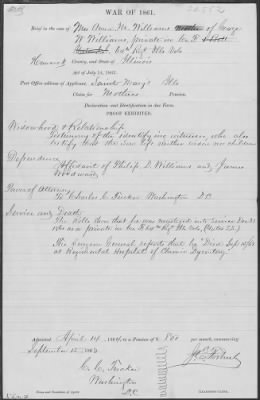 WAR OF 1861.
Brief in the case of Mrs Anna M. Williams Mother of George
W Williams, private in Co. B
64th Regt Ills Vols
Hancock County, and State of Illinois
Act of July 14, 1862.
Post Office address of Applicant, Saint Mary's Ills
Claim for Mother's Pension.
Declaration and Identification in due Form.
PROOF EXHIBITED:
Widowhood & Relationship
Testimony of the identifying witnesses, who also
testify that the Son left neither widow nor children
Dependence
Affidavit of Philip D. Williams and James
Woodward
Power of Attorney
To Charles C. Tucker Washington D.C.
Service and Death
The Rolls show that he was mustered into service
as a private in Co B 64th Regt Ills Vols,
The Surgeon General reports that he Died Sep
at Regimental Hospital of Chronic Dysentery
Admitted April 14, 1864, to a Pension of $ 8.00 per month, commencing
September 12 1863
C. C. Tucker
Washington
D.C.
EXAMINING CLERK.